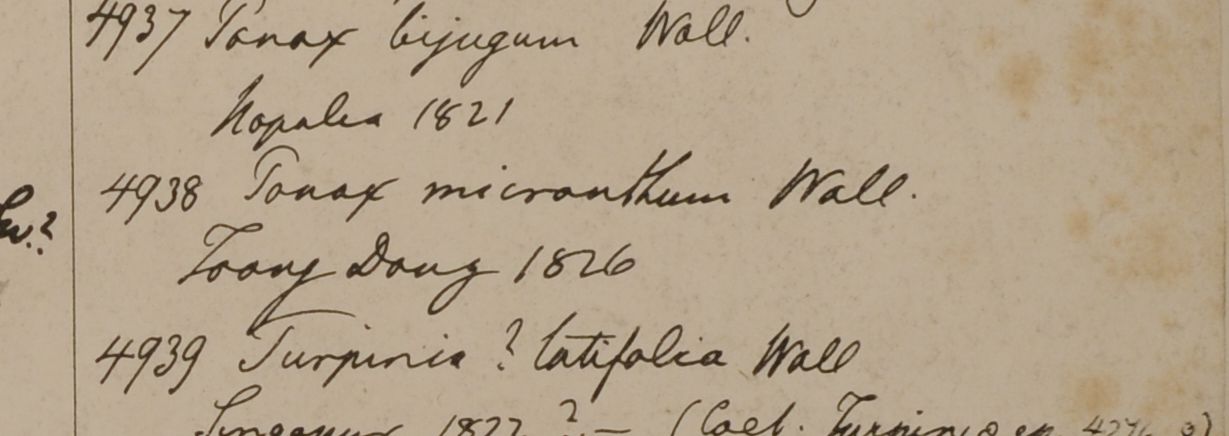 4937 Panax bijugum Wall.
Napalia 1821
4938 Panax micranthum Wall.
Toong Dong 1826
4939 Turpinia ? latifolia Wall
Singapur 1822 ? — (Coel. Turpinia